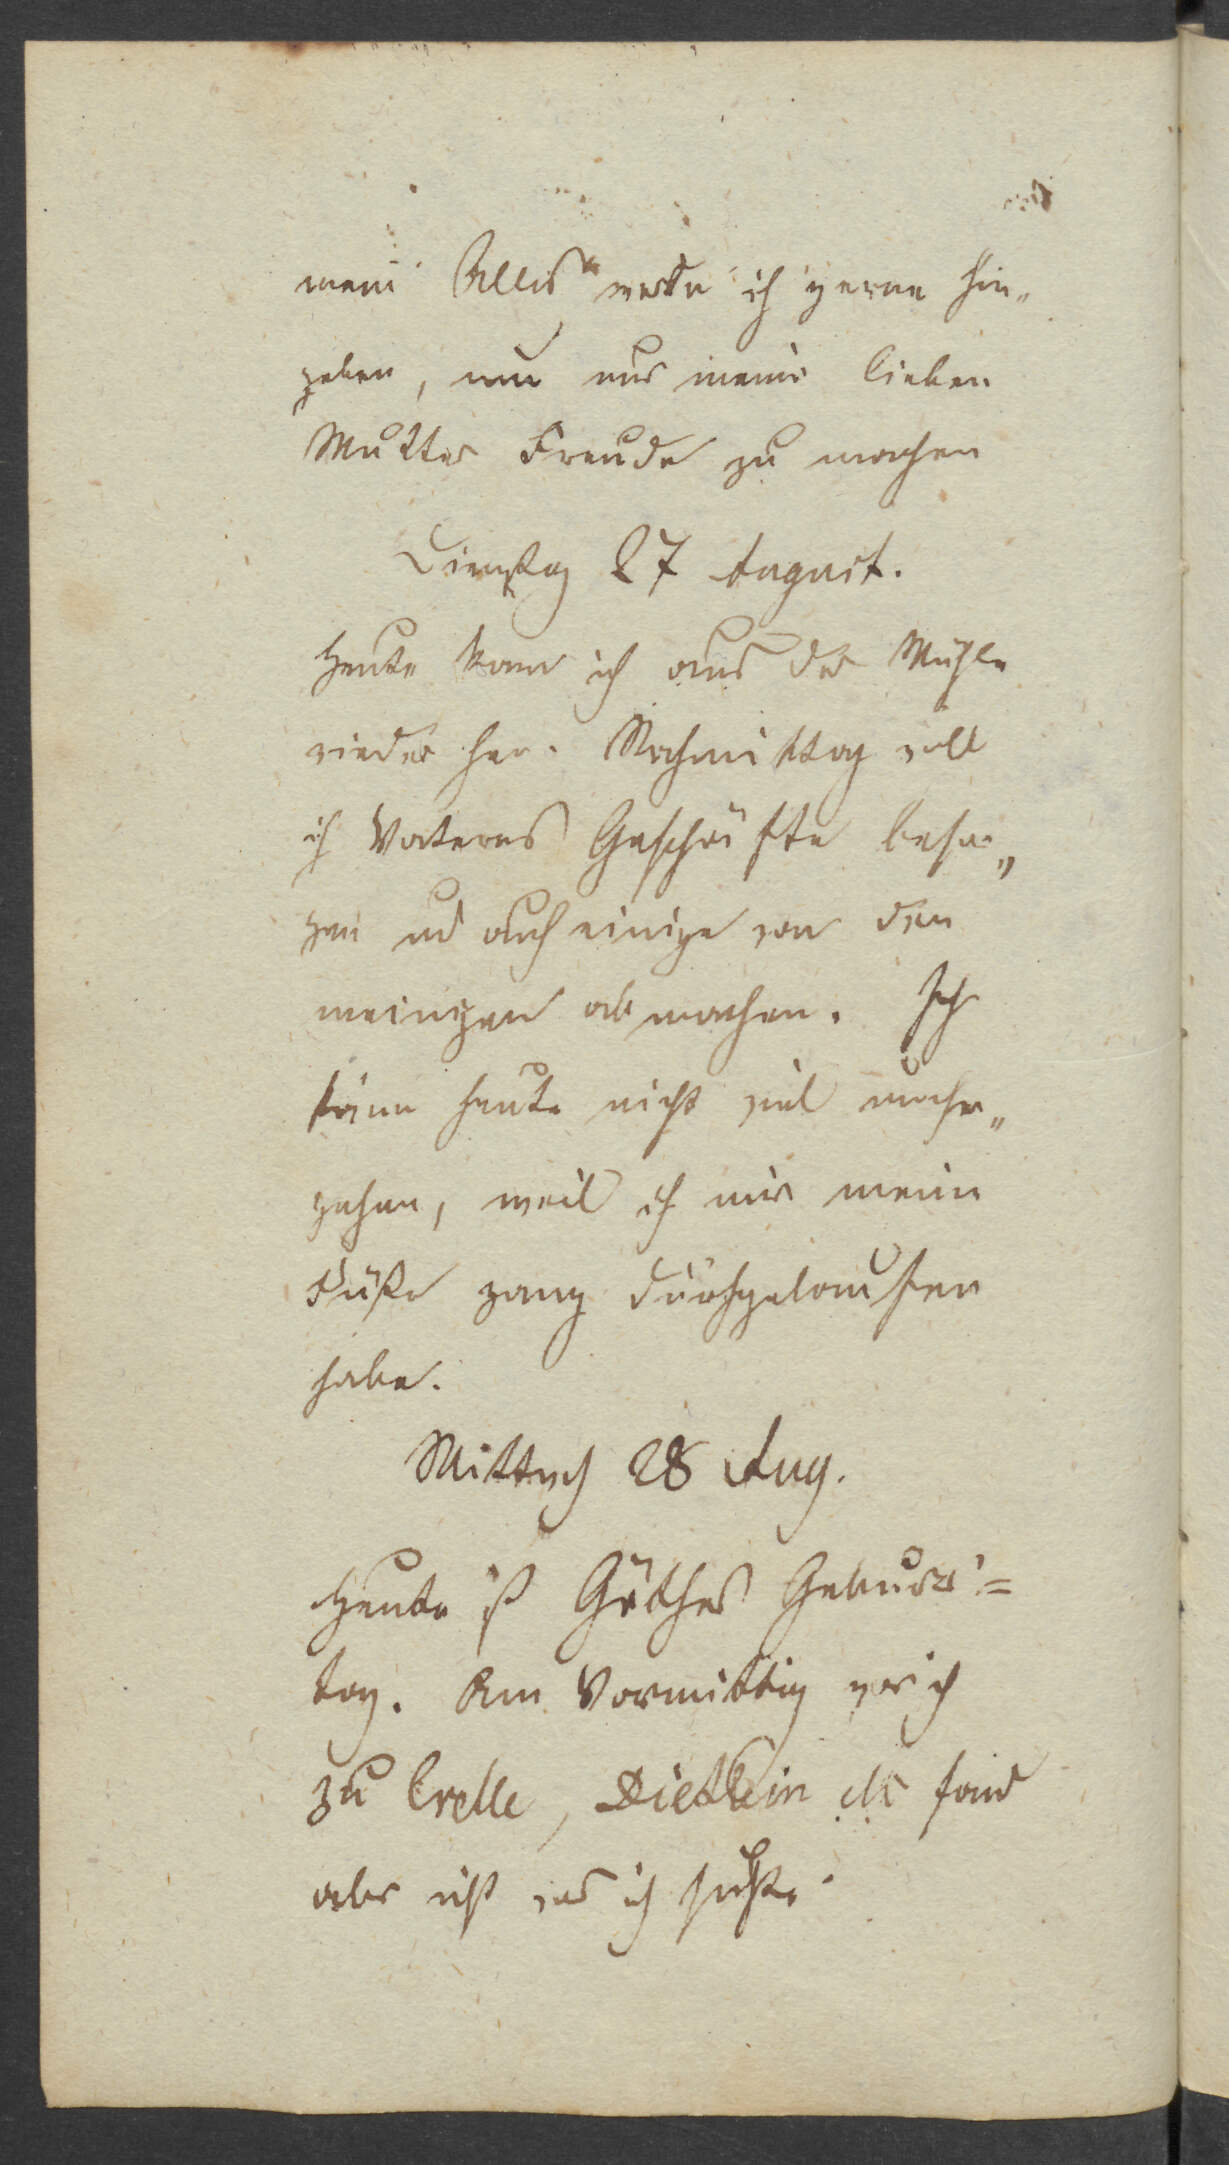 mein Alles werde ich gerne hin„
geben, um nur meine lieben
Mutter Freude zu machen
Dienstag 27 August.
Heute kam ich aus der Mühle
wieder her. Nachmittag will
ich Vaters Geschäfte besor„
gen und auch einige von den
meinigen abmachen. Ich
kann heute nicht viel umher„
gehen, weil ich mir meine
Füße ganz durchgelaufen
habe.
Mittwoch 28 Aug.
Heute ist Göthes Geburts=
tag. Am Vormittag war ich
zu Crelle, Dietlein fand
aber nicht was ich suchte.